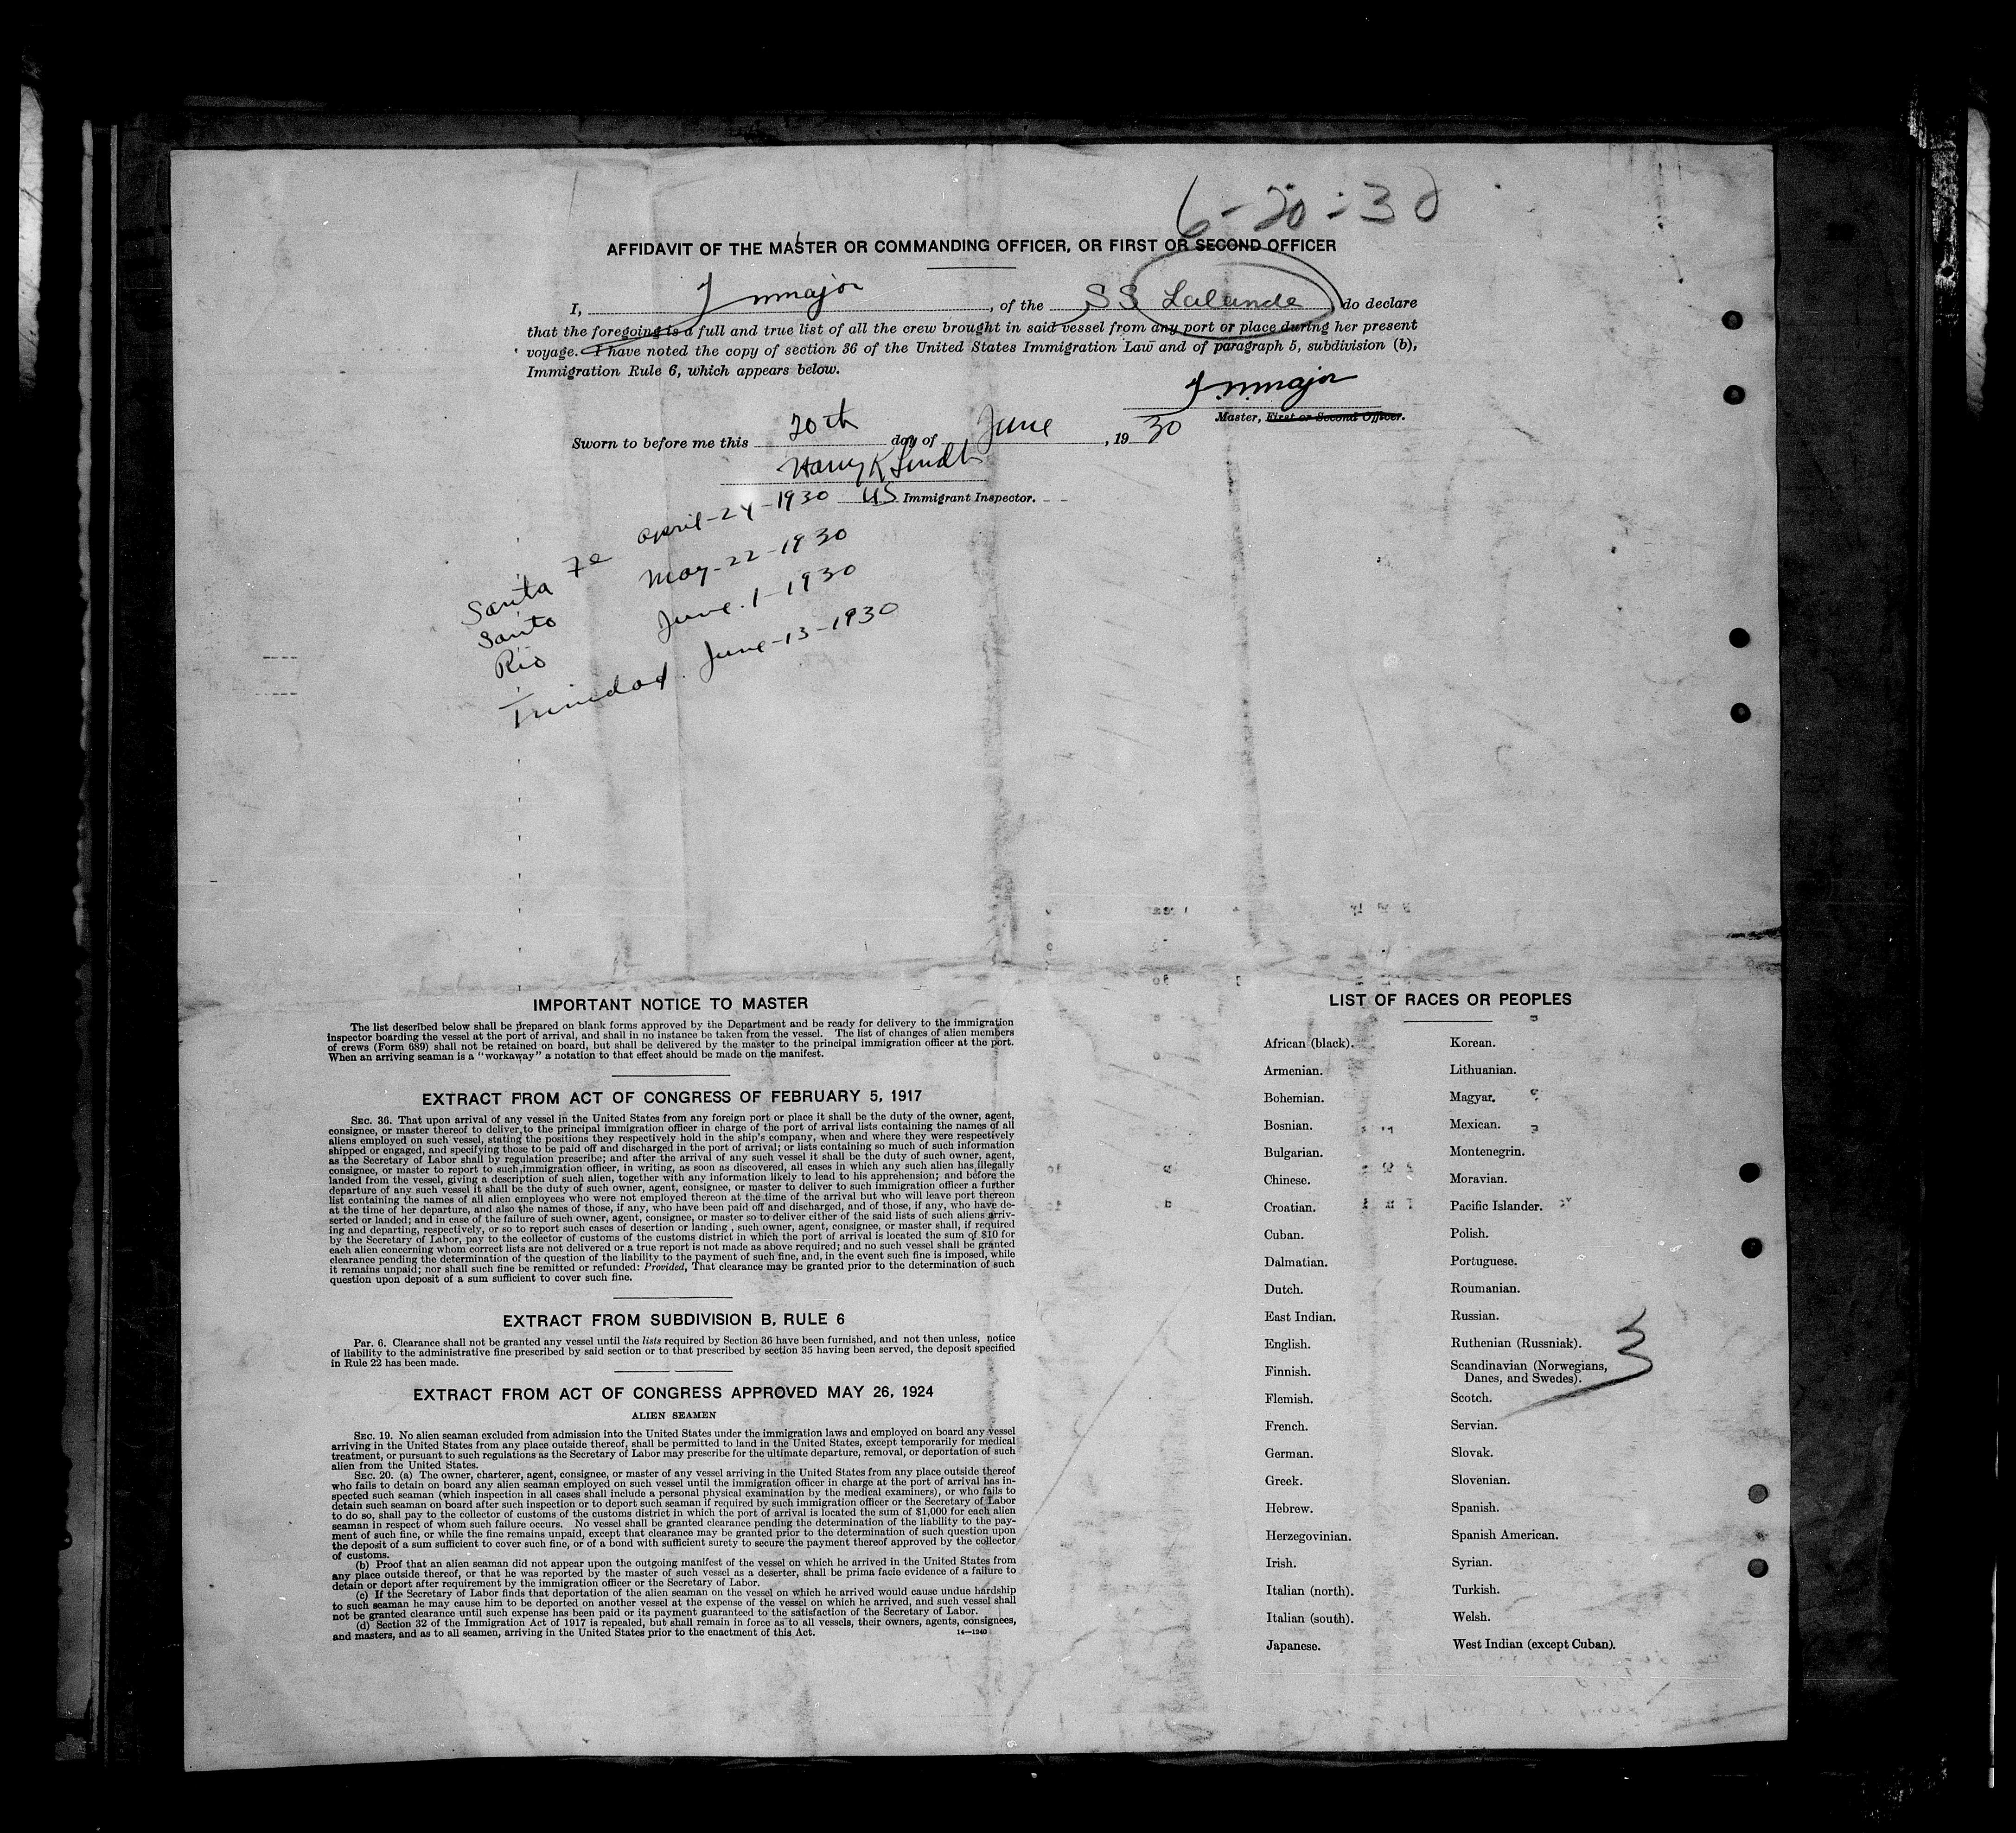 6-20-30
AFFIDAVIT OF THE MASTER OR COMMANDING OFFICER, OR FIRST OR SECOND OFFICER
I, major, of the SS Lalande do declare
that the foregoing is a full and true list of all the crew brought in said vessel from any port or place during her present
voyage. I have noted the copy of section 36 of the United States Immigration Law and of paragraph 5, subdivision (b),
Immigration Rule 6, which appears below.
major
Master, First or Second Officer.
Sworn to before me this 20th day of June, 1930
Harry K
US Immigrant Inspector.
Santa Fe April-24-1930
Santo May-22-1930
Rio June-1-1930
Trinidad. June-13-1930
IMPORTANT NOTICE TO MASTER
The list described below shall be prepared on blank forms approved by the Department and be ready for delivery to the immigration
inspector boarding the vessel at the port of arrival, and shall in no instance be taken from the vessel. The list of changes of alien members
of crews (Form 689) shall not be retained on board, but shall be delivered by the master to the principal immigration officer at the port.
When an arriving seaman is a "workaway" a notation to that effect should be made on the manifest.
EXTRACT FROM ACT OF CONGRESS OF FEBRUARY 5, 1917
SEC. 36. That upon arrival of any vessel in the United States from any foreign port or place it shall be the duty of the owner, agent,
consignee, or master thereof to deliver to the principal immigration officer in charge of the port of arrival lists containing the names of all
aliens employed on such vessel, stating the positions they respectively hold in the ship's company, when and where they were respectively
shipped or engaged, and specifying those to be paid off and discharged in the port of arrival; or lists containing so much of such information
as the Secretary of Labor shall by regulation prescribe; and after the arrival of any such vessel it shall be the duty of such owner, agent,
consignee, or master to report to such immigration officer, in writing, as soon as discovered, all cases in which any such alien has illegally
landed from the vessel, giving a description of such alien, together with any information likely to lead to his apprehension; and before the
departure of any such vessel it shall be the duty of such owner, agent, consignee, or master to deliver to such immigration officer a further
list containing the names of all alien employees who were not employed thereon at the time of the arrival but who will leave port thereon
at the time of her departure, and also the names of those, if any, who have been paid off and discharged, and of those, if any, who have de-
serted or landed; and in case of the failure of such owner, agent, consignee, or master so to deliver either of the said lists of such aliens arriv-
ing and departing, respectively, or so to report such cases of desertion or landing, such owner, agent, consignee, or master shall, if required
by the Secretary of Labor, pay to the collector of customs of the customs district in which the port of arrival is located the sum of $10 for
each alien concerning whom correct lists are not delivered or a true report is not made as above required; and no such vessel shall be granted
clearance pending the determination of the question of the liability to the payment of such fine, and, in the event such fine is imposed, while
it remains unpaid; nor shall such fine be remitted or refunded: Provided, That clearance may be granted prior to the determination of such
question upon deposit of a sum sufficient to cover such fine.
EXTRACT FROM SUBDIVISION B, RULE 6
Par. 6. Clearance shall not be granted any vessel until the lists required by Section 36 have been furnished, and not then unless, notice
of liability to the administrative fine prescribed by said section or to that prescribed by section 35 having been served, the deposit specified
in Rule 22 has been made.
EXTRACT FROM ACT OF CONGRESS APPROVED MAY 26, 1924
ALIEN SEAMEN
SEC. 19. No alien seaman excluded from admission into the United States under the immigration laws and employed on board any vessel
arriving in the United States from any place outside thereof, shall be permitted to land in the United States, except temporarily for medical
treatment, or pursuant to such regulations as the Secretary of Labor may prescribe for the ultimate departure, removal, or deportation of such
alien from the United States.
SEC. 20. (a) The owner, charterer, agent, consignee, or master of any vessel arriving in the United States from any place outside thereof
who fails to detain on board any alien seaman employed on such vessel until the immigration officer in charge at the port of arrival has in-
spected such seaman (which inspection in all cases shall include a personal physical examination by the medical examiners), or who fails to
detain such seaman on board after such inspection or to deport such seaman if required by such immigration officer or the Secretary of Labor
to do so, shall pay to the collector of customs of the customs district in which the port of arrival is located the sum of $1,000 for each alien
seaman in respect of whom such failure occurs. No vessel shall be granted clearance pending the determination of the liability to the pay-
ment of such fine, or while the fine remains unpaid, except that clearance may be granted prior to the determination of such question upon
the deposit of a sum sufficient to cover such fine, or of a bond with sufficient surety to secure the payment thereof approved by the collector
of customs.
(b) Proof that an alien seaman did not appear upon the outgoing manifest of the vessel on which he arrived in the United States from
any place outside thereof, or that he was reported by the master of such vessel as a deserter, shall be prima facie evidence of a failure to
detain or deport after requirement by the immigration officer or the Secretary of Labor.
(c) If the Secretary of Labor finds that deportation of the alien seaman on the vessel on which he arrived would cause undue hardship
to such seaman he may cause him to be deported on another vessel at the expense of the vessel on which he arrived, and such vessel shall
not be granted clearance until such expense has been paid or its payment guaranteed to the satisfaction of the Secretary of Labor.
(d) Section 32 of the Immigration Act of 1917 is repealed, but shall remain in force as to all vessels, their owners, agents, consignees,
and masters, and as to all seamen, arriving in the United States prior to the enactment of this Act. 14—1240
LIST OF RACES OR PEOPLES
African (black). Korean.
Armenian. Lithuanian.
Bohemian. Magyar.
Bosnian. Mexican.
Bulgarian. Montenegrin.
Chinese. Moravian.
Croatian. Pacific Islander.
Cuban. Polish.
Dalmatian. Portuguese.
Dutch. Roumanian.
East Indian. Russian.
English. Ruthenian (Russniak).
Finnish. Scandinavian (Norwegians,
Danes, and Swedes).
Flemish. Scotch.
French. Servian.
German. Slovak.
Greek. Slovenian.
Hebrew. Spanish.
Herzegovinian. Spanish American.
Irish. Syrian.
Italian (north). Turkish.
Italian (south). Welsh.
Japanese. West Indian (except Cuban).